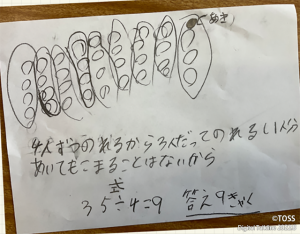 あき
4人ずつのれるから3人だってのれるし1人分
あいてもこまることはないから
式
35÷4=9 答え9きゃく
©TOSS